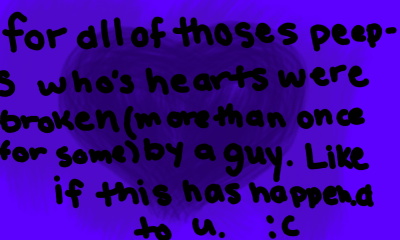 for all of thoses peep-
s who's hearts were
broken (more than once
for some) by a guy. Like
if this has happend
to u. :c